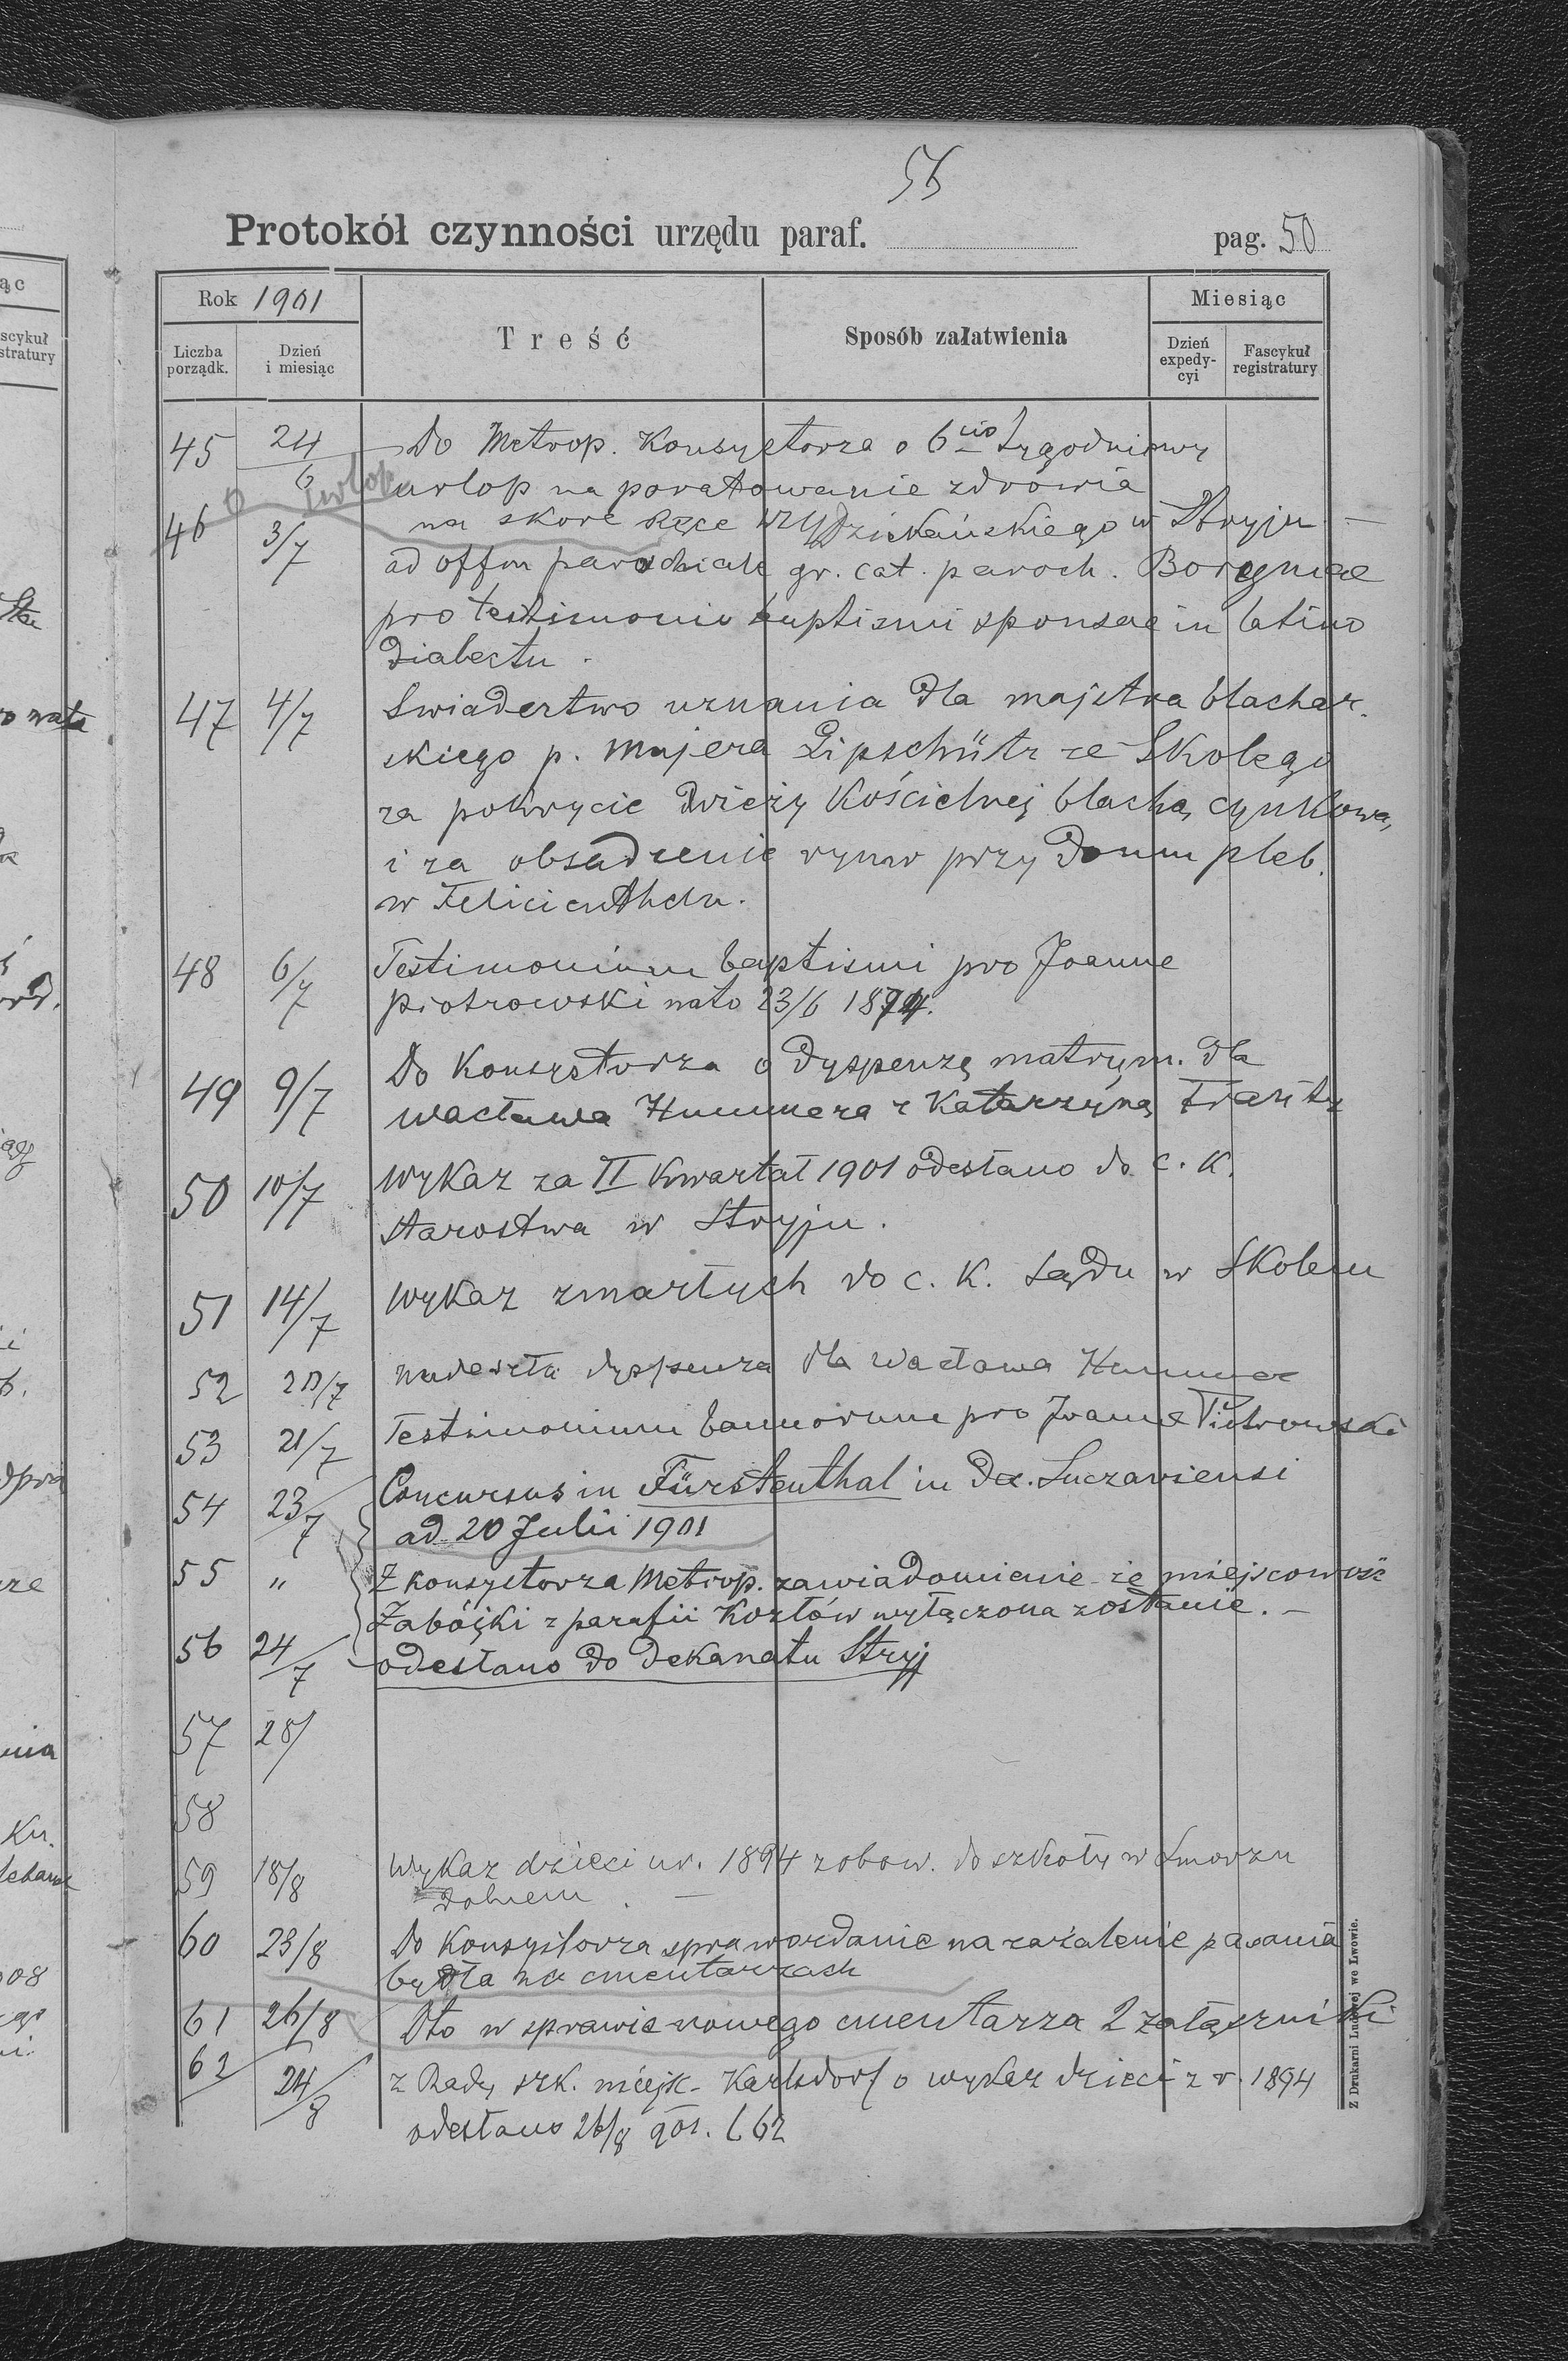 56
Protokół czynności urzędu paraf. pag. 50
Rok 1901
Treść
Sposób załatwienia
Miesiąc
Liczba porządk.
Dzień i miesiąc
Dzień expedy-cyi
Fascykuł registratury
45 24/6 Do Metrop. Konsystorza o 6cio tygodniowy
urlop na poratowanie zdrowia
na ręce Dziekańskiego w Stryju —
46 3/7 ad offm parochiale gr. cat. paroch. Boryniae
pro testimonio baptismi sponsae in latino
dialectu.
47 4/7 Swiadectwo uznania dla majstra blachar.
skiego p. Majera Lipschütz ze Skolego
za pokrycie wieży Kościelnej blachą cynkową
i za obsadzenie rynw przy domu pleb.
w Felicienthalu.
48 6/7 Testimonium baptismi pro Joanne
Piotrowski nato 23/6 1874.
49 9/7 Do Konsystorza o dyspenzę matrym. dla
Wacława Hummera z Katarzyną
50 10/7 Wykaz za II Kwartał 1901 odesłano do c. K.
starostwa w Stryju.
51 14/7 Wykaz zmarłych do c. K. Sądu w Skolem
52 20/7 nadeszła dyspenza dla Wacława Hummer
53 21/7 Testimonium bannorum pro Joanne Piotrowski
54 23/7 Concursus in Fürstenthal in Dec. Suczaviensi
ad 20 Julii 1901
55 " Z Konsystorza Metrop. zawiadomienie że miejscowość
Zabójki z parafii Kozłów wyłączona zostanie. —
56 24/7 odesłano do Dekanatu Stryj
57 28/
58
59 18/8 Wykaz dzieci ur. 1894 zobow. do szkoły w Smorzu
dolnem. —
60 23/8 Do Konsystorza sprawozdanie na zażalenie pasania
bydła na cmentarzach
61 26/8 Dto w sprawie nowego cmentarza 2 załączniki
62 24/8 z Rady szk. miejsc. Karlsdorf o wykaz dzieci z r. 1894
odesłano 26/8 l 62
Z Drukarni Ludowej we Lwowie.